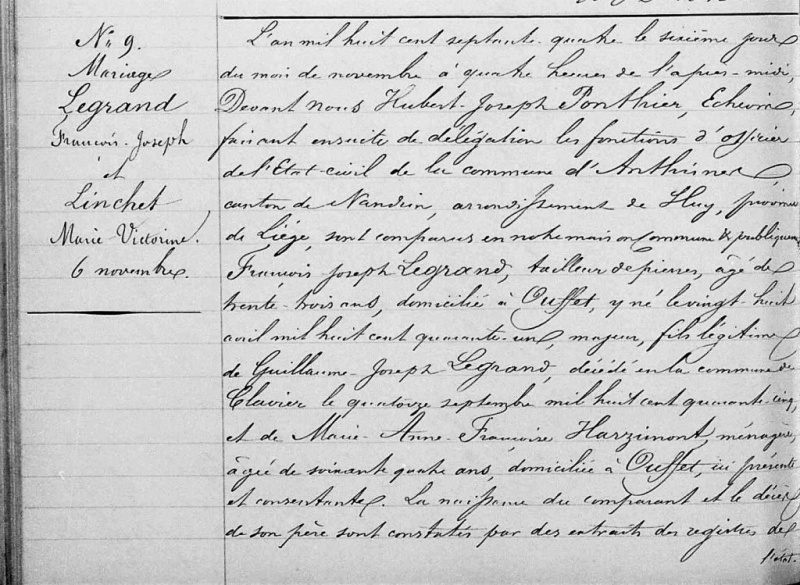 N° 9.
Mariage
Legrand
François-Joseph
et
Linchet
Marie Victorine.
6 novembre.
L'an mil huit cent septante-quatre le sixième jour
du mois de novembre à quatre heures de l'après-midi,
Devant nous Hubert-Joseph Ponthier, Echevin,
faisant ensuite de délégation les fonctions d'officier
de l'Etat-civil de la commune d'Anthisnes,
canton de Nandrin, arrondissement de Huy, province
de Liége, sont comparus en notre maison Commune & publiquement
François Joseph Legrand, tailleur de pierres, âgé de
trente-trois ans, domicilié à Ouffet, y né le vingt-huit
avril mil huit cent quarante-un, majeur, fils légitime
de Guillaume-Joseph Legrand, décédé en la commune de
Clavier le quatorze septembre mil huit cent quarante-cinq,
et de Marie-Anne-Françoise Harzimont, ménagère,
âgée de soixante quatre ans, domiciliée à Ouffet, ici présente
et consentante. La naissance du comparant et le décès
de son père sont constatés par des extraits des registres de
l'état-